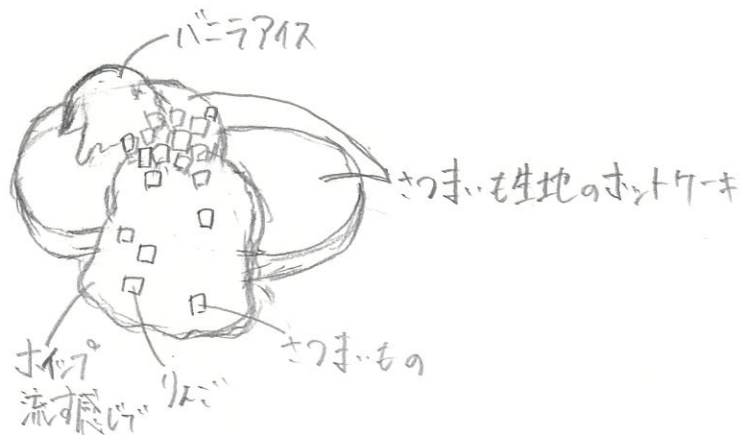 バニラアイス
さつまいも生地のホットケーキ
さつまいもの
りんご
ホイップ
流す感じで